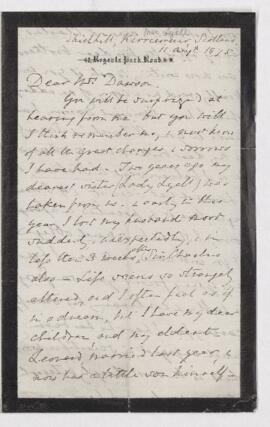 Mrs Lyell
Shielhill, Kirriemuir, Scotland
11 Augst 1875
42 Regents Park Road N.W.
Dear Mr Dawson
You will be surprized at
hearing from me but you will
I think remember me, & must know
of all the great changes, & sorrows
I have had. Two years ago my
dearest sister (Lady Lyell) was
taken from us. & early in this
year, I lost my husband most
suddenly & unexpectedly, & in
less than 3 weeks, after Sir Charles
also — Life seems so strangely
altered, and I often feel as if
in a dream, but I have my dear
children, and my eldest
Leonard married last year, &
now has a little son himself —